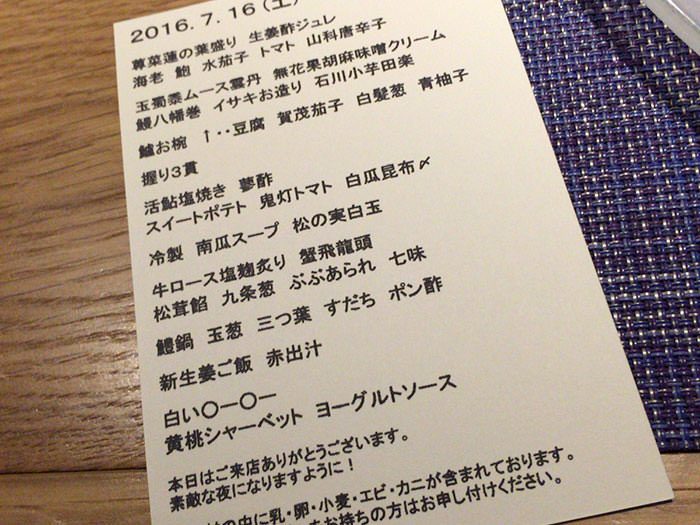 2016.7.16(土)
蓴菜蓮の葉盛り 生姜酢ジュレ
海老 鮑 水茄子 トマト 山科唐辛子
玉蜀黍ムース雲丹 無花果胡麻味噌クリーム
鰻八幡巻 イサキお造り 石川小芋田楽
鱸お椀 ↑・・豆腐 賀茂茄子 白髪葱 青柚子
握り3貫
活鮎塩焼き 蓼酢
スイートポテト 鬼灯トマト 白瓜昆布〆
冷製 南瓜スープ 松の実白玉
牛ロース塩麹炙り 蟹飛龍頭
松茸餡 九条葱 ぶぶあられ 七味
鱧鍋 玉葱 三つ葉 すだち ポン酢
新生姜ご飯 赤出汁
白い〇ー〇ー
黄桃シャーベット ヨーグルトソース
本日はご来店ありがとうございます。
素敵な夜になりますように!
の中に乳・卵・小麦・エビ・カニが含まれております。
をお持ちの方はお申し付けください。